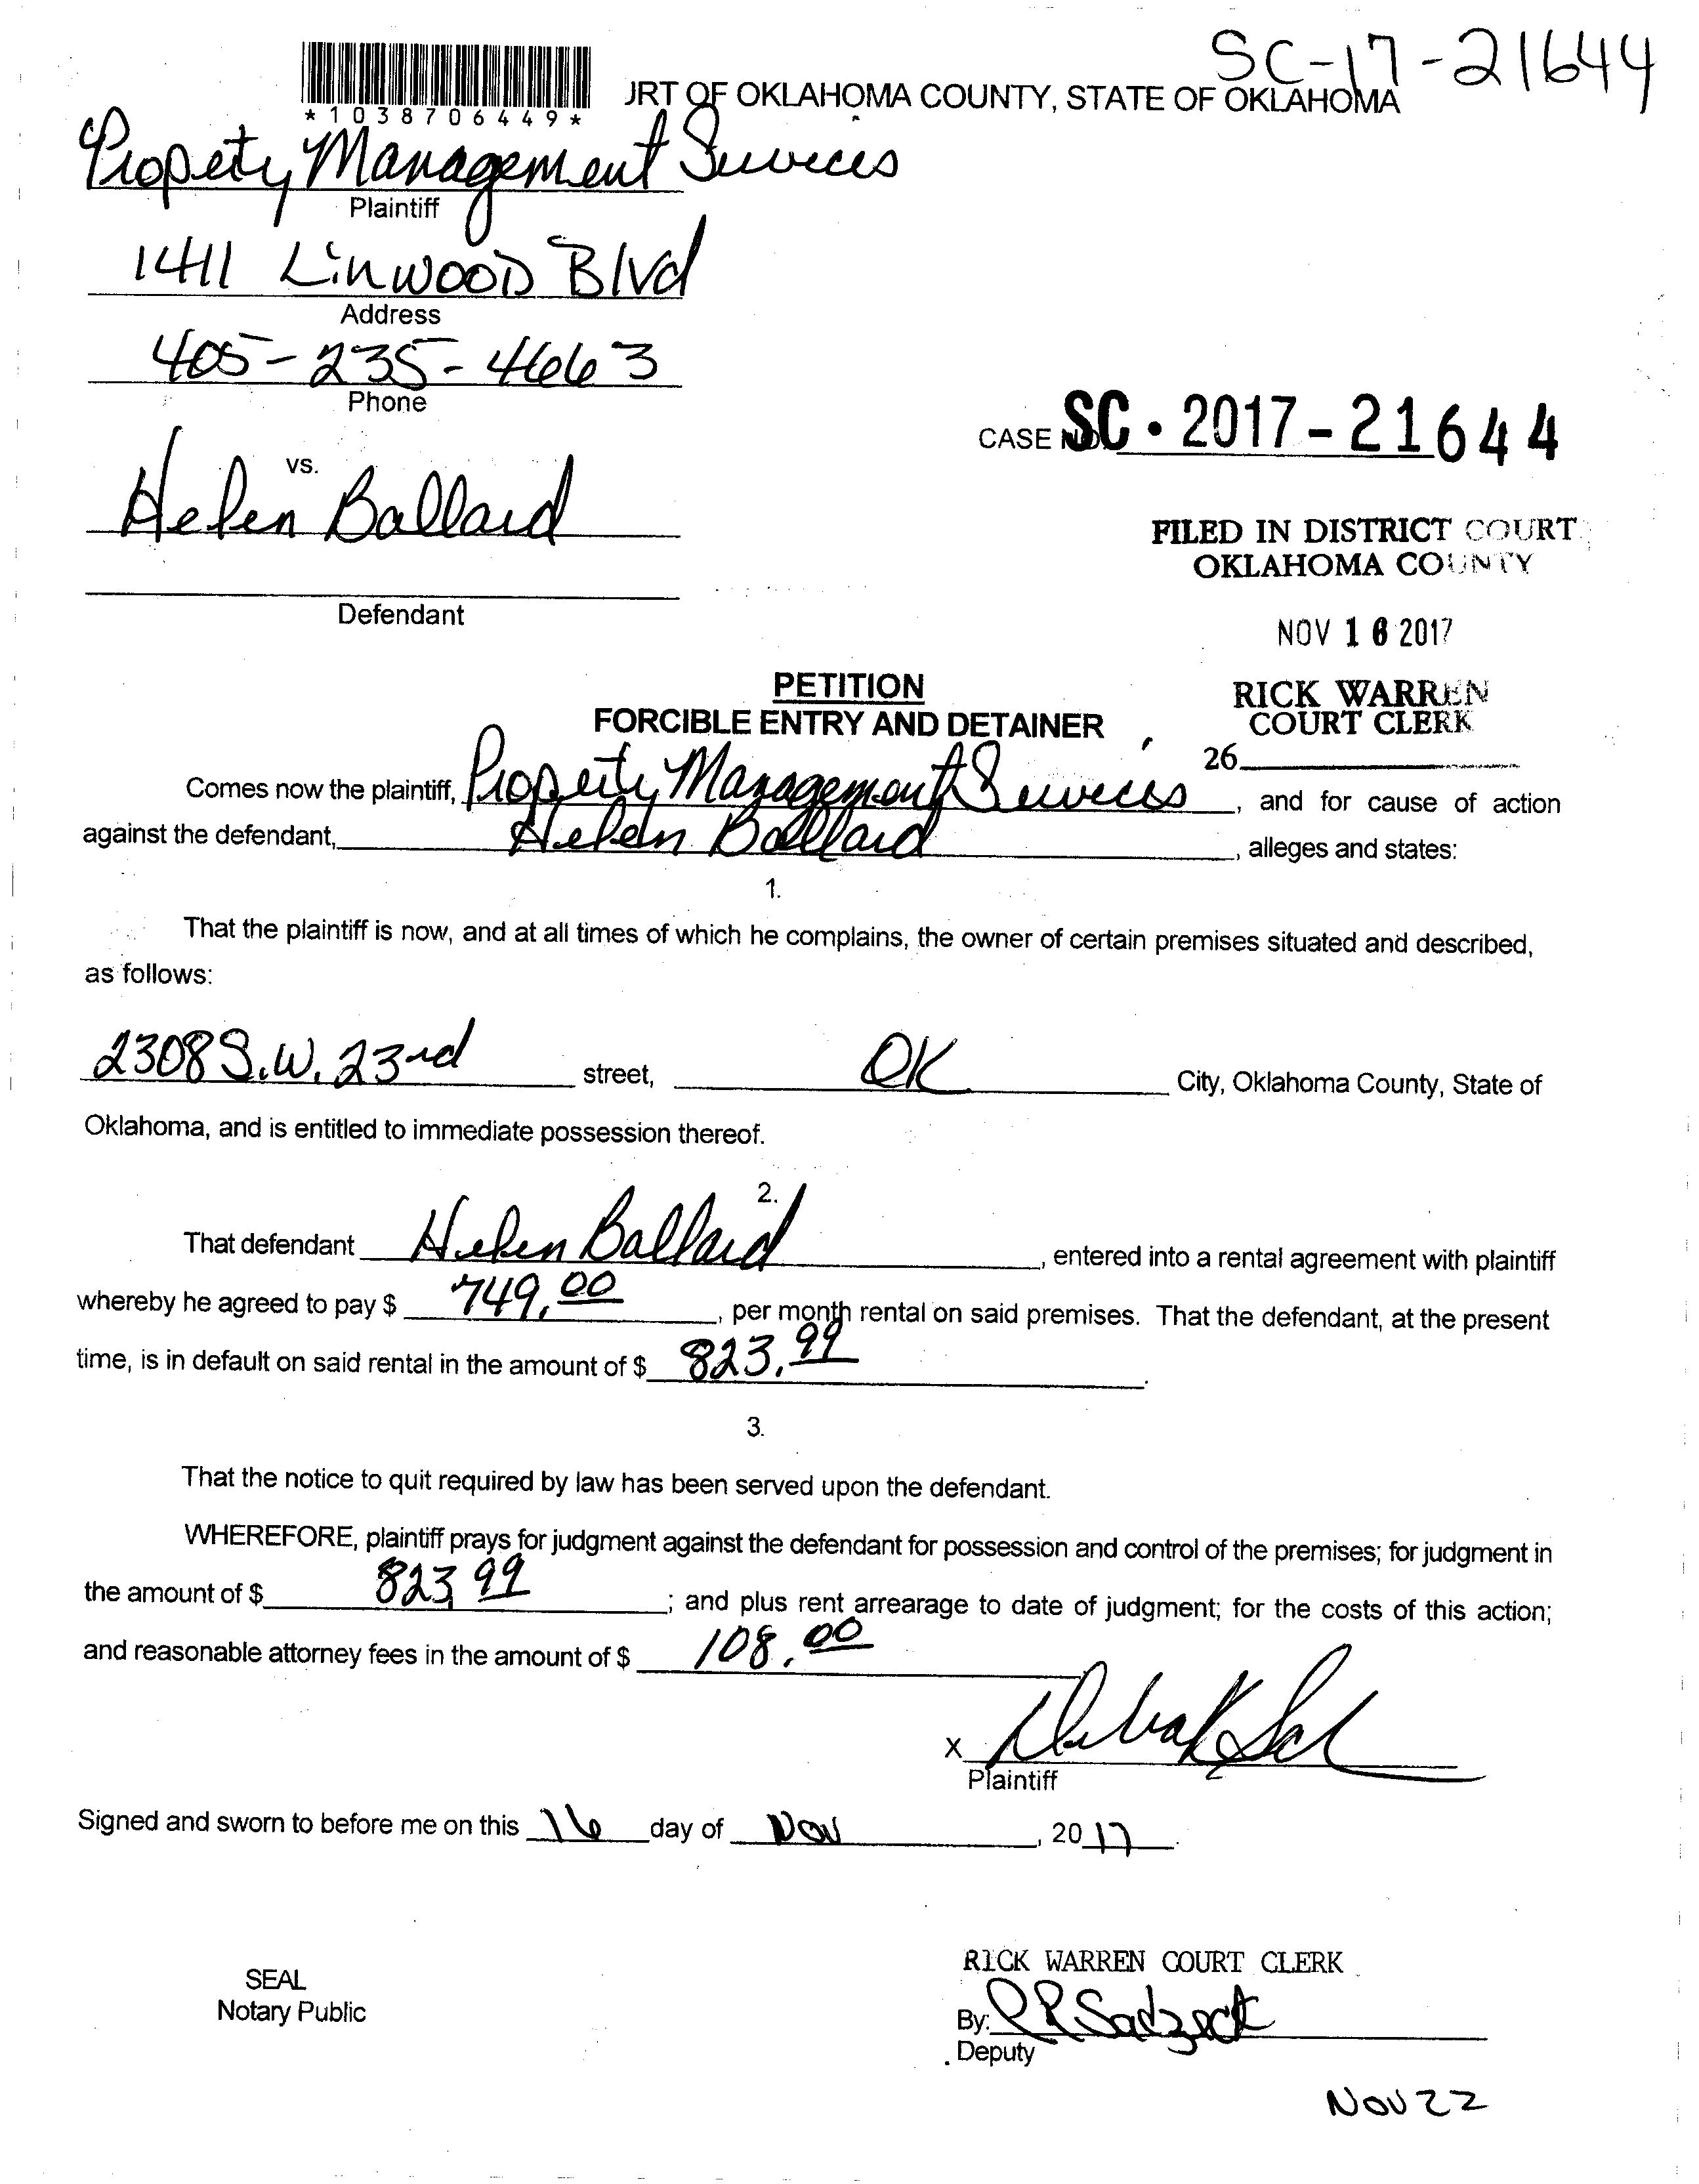 SC-17-21644
*1038706449*
JRT OF OKLAHOMA COUNTY, STATE OF OKLAHOMA
Propety Management Services
Plaintiff
1411 Linwood Blvd
Address
405-235-4663
Phone
CASE NO. SC • 2017-21644
vs.
Helen Ballard
FILED IN DISTRICT COURT
OKLAHOMA COUNTY
Defendant
NOV 16 2017
PETITION
FORCIBLE ENTRY AND DETAINER
RICK WARREN
COURT CLERK
26
Comes now the plaintiff, Property Management Services, and for cause of action
against the defendant, Helen Ballard, alleges and states:
1.
That the plaintiff is now, and at all times of which he complains, the owner of certain premises situated and described,
as follows:
2308 S.W. 23rd street, OK City, Oklahoma County, State of
Oklahoma, and is entitled to immediate possession thereof.
2.
That defendant Helen Ballard, entered into a rental agreement with plaintiff
whereby he agreed to pay $ 749.00, per month rental on said premises. That the defendant, at the present
time, is in default on said rental in the amount of $ 823.99.
3.
That the notice to quit required by law has been served upon the defendant.
WHEREFORE, plaintiff prays for judgment against the defendant for possession and control of the premises; for judgment in
the amount of $ 823.99; and plus rent arrearage to date of judgment; for the costs of this action;
and reasonable attorney fees in the amount of $ 108.00
X
Plaintiff
Signed and sworn to before me on this 16 day of Nov, 2017.
RICK WARREN COURT CLERK
SEAL
Notary Public
By:
Deputy
NOV 22